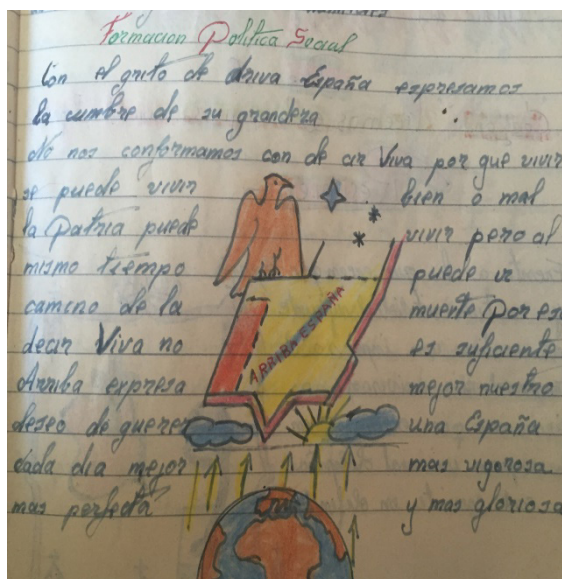 Formacion Politica Social
Con el grito de Arriva España expresamos
la cumbre de su grandera
No nos conformamos con de cir Viva por que vivir
se puede vivir bien o mal
la Patria puede vivir pero al
mismo tiempo puede ir
camino de la muerte Por eso
decir Viva no es suficiente
Arriba expresa mejor nuestro
deseo de querer una España
cada dia mejor mas vigorosa
mas perfecta y mas gloriosa
ARRIBA ESPAÑA